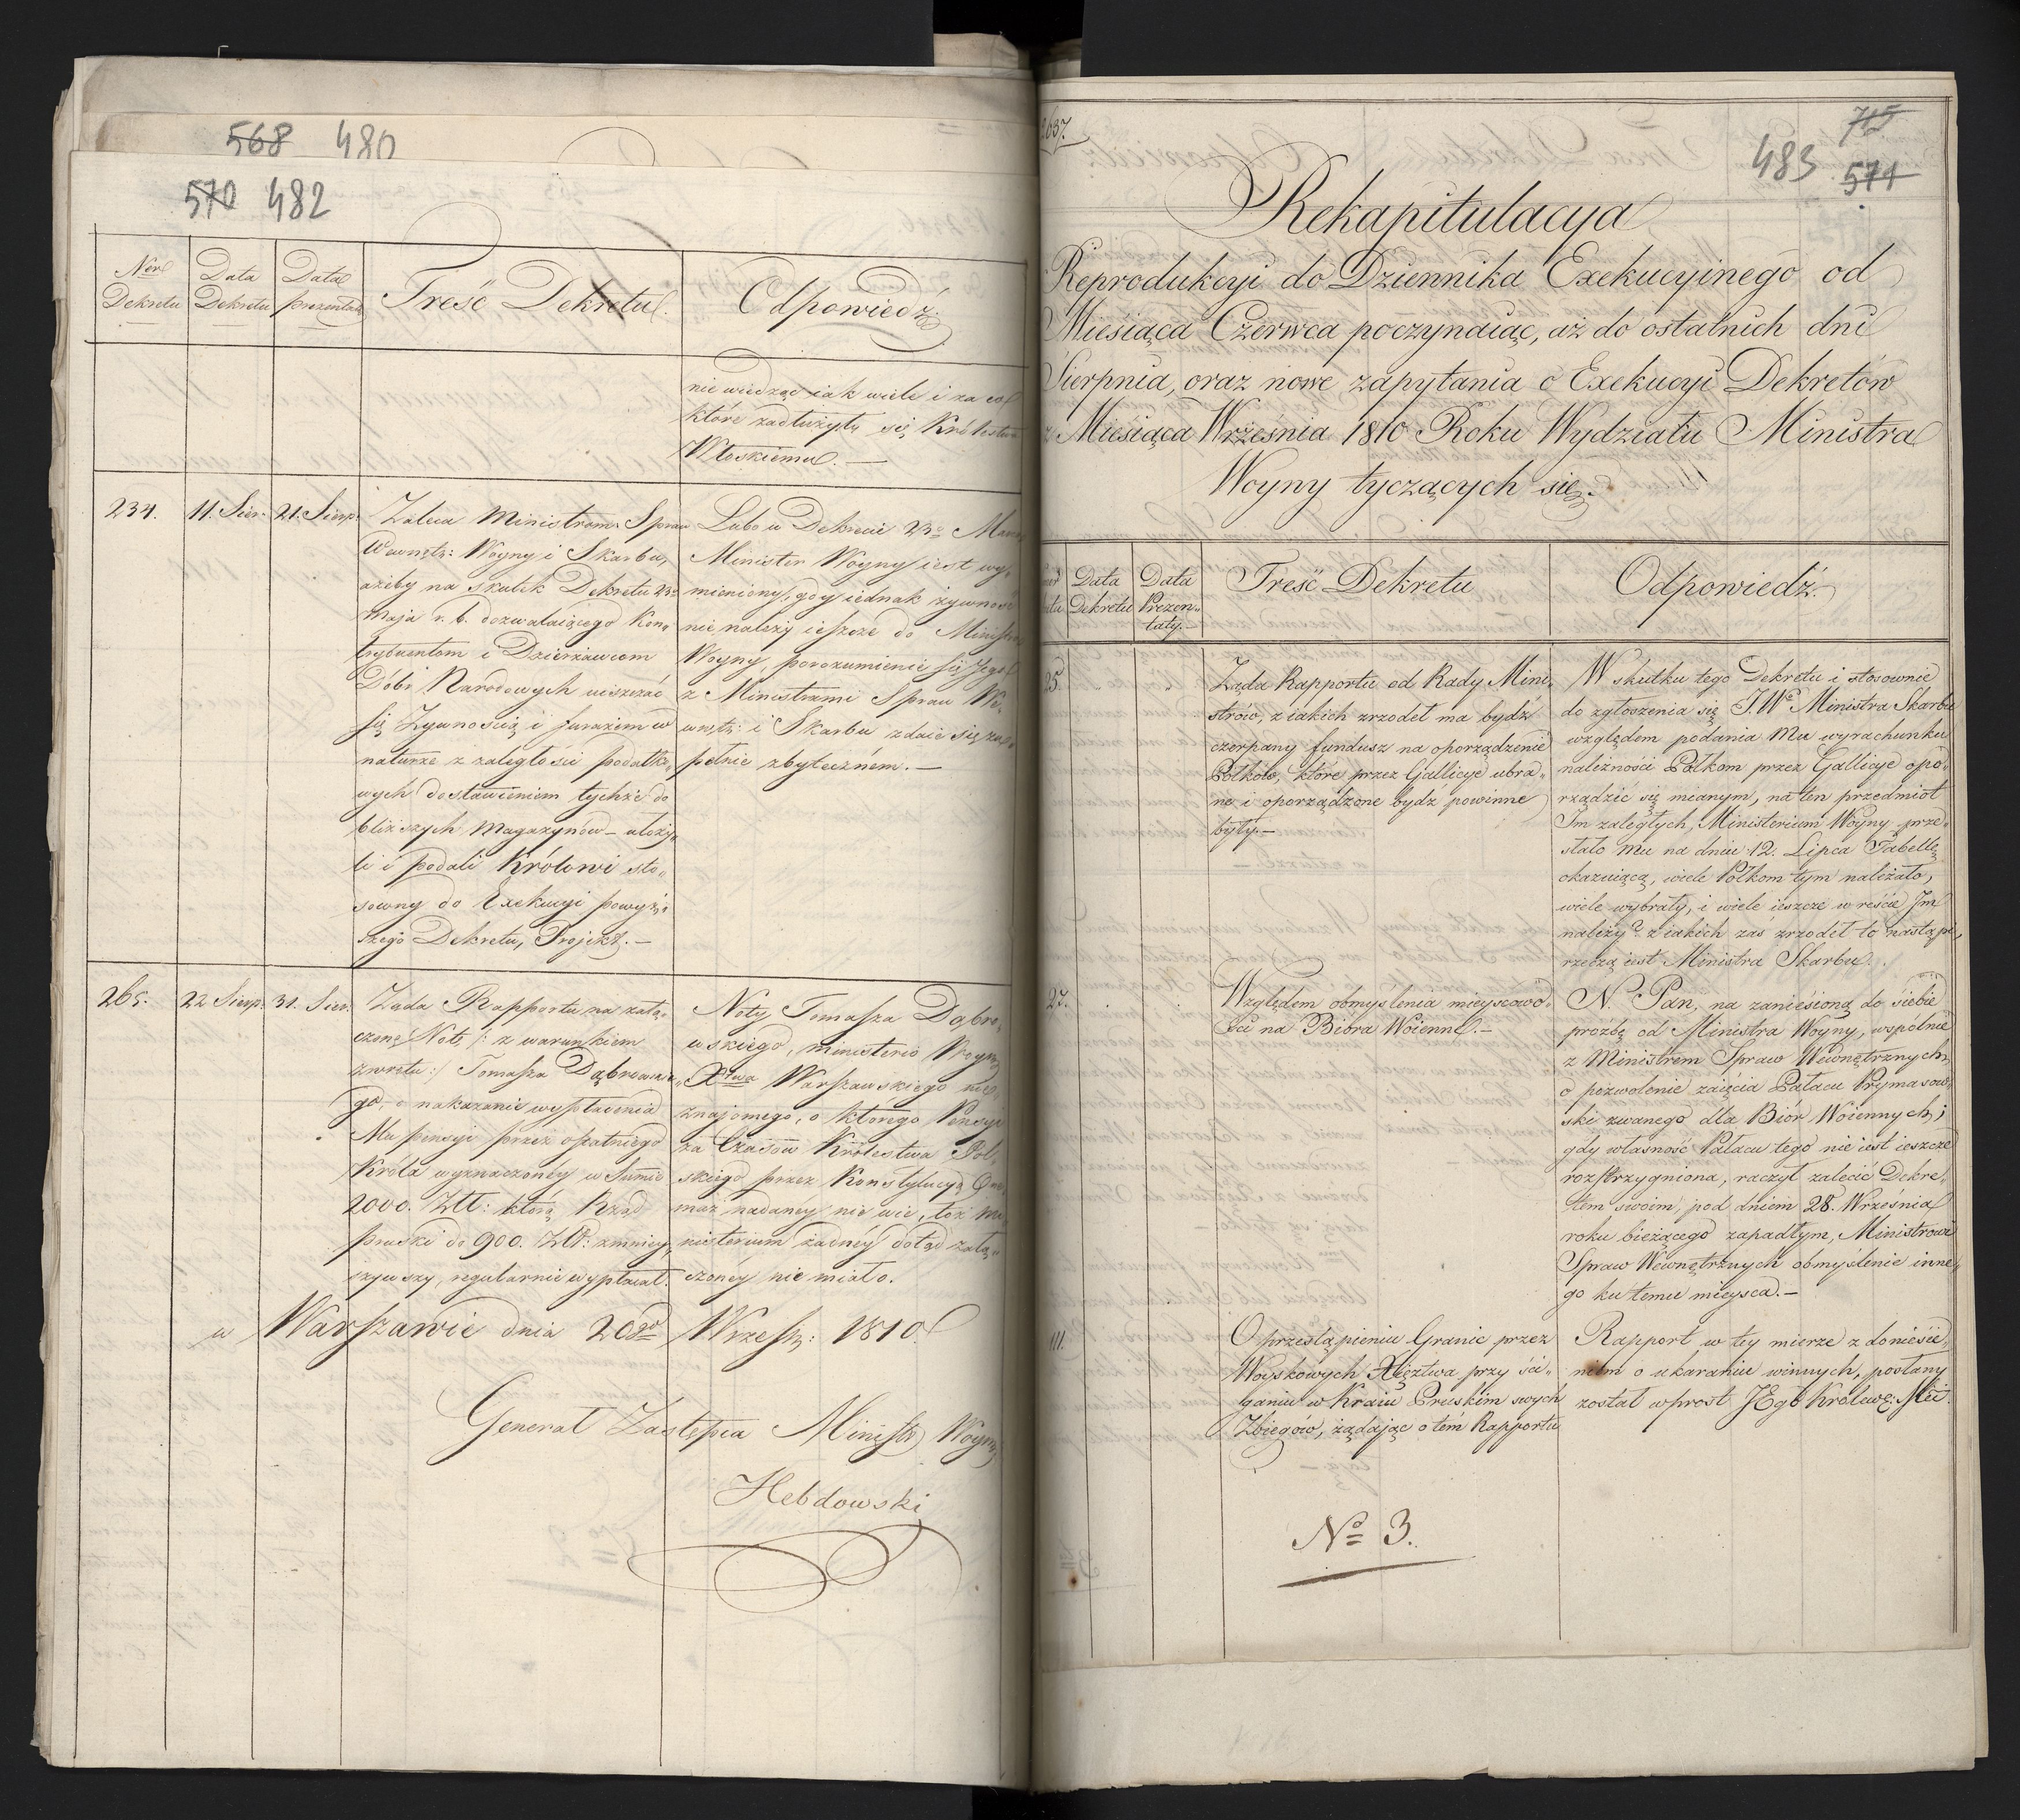 568 480
570 482
Ner Dekretu
Data Dekretu
Data prezentaty
Treść Dekretu.
Odpowiedź.
nie wiedząc iak wiele i za co
które zadłużyły się Królestwu
Włoskiemu. —
234.
11. Sier.
21. Sierp.
Zaleca Ministrom Spraw
Wewnętr: Woyny i Skarbu,
ażeby na skutek Dekretu 23o
Maja r. b. dozwalaiącego Kon„
trybuentom i Dzierżawcom
Dóbr Narodowych uiszczać
się Żywnością i furażem w
naturze z zaległości podatko„
wych dostawieniem tychże do
bliższych Magazynów – ułoży„
li i podali Królowi sto„
sowny do Exekucyi powyż„
szego Dekretu, Projekt. —
Lubo w Dekrecie 23o Maia
Minister Woyny iest wy„
mieniony, gdy iednak żywność
nie należy ieszcze do Ministra
Woyny, porozumienie się Jego
z Ministrami Spraw We„
wnętr: i Skarbu zdaie się zu„
pełnie zbyteczném. —
265.
22 Sierp.
31. Sier.
Żąda Rapportu na załą„
czoną Notę /: z warunkiem
zwrotu :/ Tomasza Dąbrowskie„
go, o nakazanie wypłacenia
Mu pensyi przez ostatniego
Króla wyznaczoney w Summie
2000. Złł: którą Rząd
pruski do 900. Złł: zmniey„
szywszy, regularnie wypłacał.
Noty Tomasza Dąbro„
wskiego, ministerio Woyny
Xtwa Warszawskiego nie„
znajomego, o którego Pensyi
za Czasów Królestwa Pol„
skiego przez Konstytucyą
nadaney nie wie, toż Mi„
nisterium żadnéy dotąd załą„
czonéy nie miało.
w Warszawie dnia 20go Wrześ: 1810.
Generał Zastępca Ministr Woyny
Hebdowski
2037.
715
483 571
Rekapitulacya
Reprodukcyi do Dziennika Exekucyinego od
Miesiąca Czerwca poczynaiąc, aż do ostatnich dni
Sierpnia, oraz nowe zapytania o Exekucyi Dekretów
z Miesiąca Września 1810 Roku Wydziału Ministra
Woyny tyczących się.
Data Dekretu
Data Prezen„
taty.
Treść Dekretu
Odpowiedź.
25.
Żąda Rapportu od Rady Mini„
strów, z iakich zrzodeł ma bydź
czerpany fundusz na oporządzenie
Półków, które przez Gallicyę ubra„
ne i oporządzone bydź powinne
były. —
W skutku tego Dekretu i stosownie
do zgłoszenia się J.W° Ministra Skarbu
względem podania Mu wyrachunku
należności Półkom przez Gallicyę opo„
rządzić się mianym, na ten przedmiot
Im zaległych, Ministerium Woyny prze„
słało Mu na dniu 12. Lipca Tabellę
okazuiącą, wiele Półkom tym należało,
wiele wybrały, i wiele ieszcze w reście Im
należy? z iakich zaś zrzodeł to nastąpi,
rzeczą iest Ministra Skarbu.
27.
Względem obmyslenia mieyscowo„
ści na Bióra Woienne. —
N. Pan, na zaniesioną do siebie
proźbę od Ministra Woyny, wspólnie
z Ministrem Spraw Wewnętrznych,
o pozwolenie zaięcia Pałacu Prymasow„
ski zwanego dla Biór Woiennych,
gdy własność Pałacu tego nie iest ieszcze
rozstrzygniona, raczył zalecić Dekre„
tem swoim, pod dniem 28. Września
roku bieżącego zapadłym, Ministrowi
Spraw Wewnętrznych obmyślenie inne„
go ku temu mieysca. —
111.
O przestąpieniu Granic przez
Woyskowych Xięztwa przy ści„
ganiu w Kraiu Pruskim swych
Zbiegów, żądając o tém Rapportu
Rapport w tey mierze z doniesie„
niem o ukaraniu winnych, posłany
został wprost JEgo Królewę: Mci.
No 3.